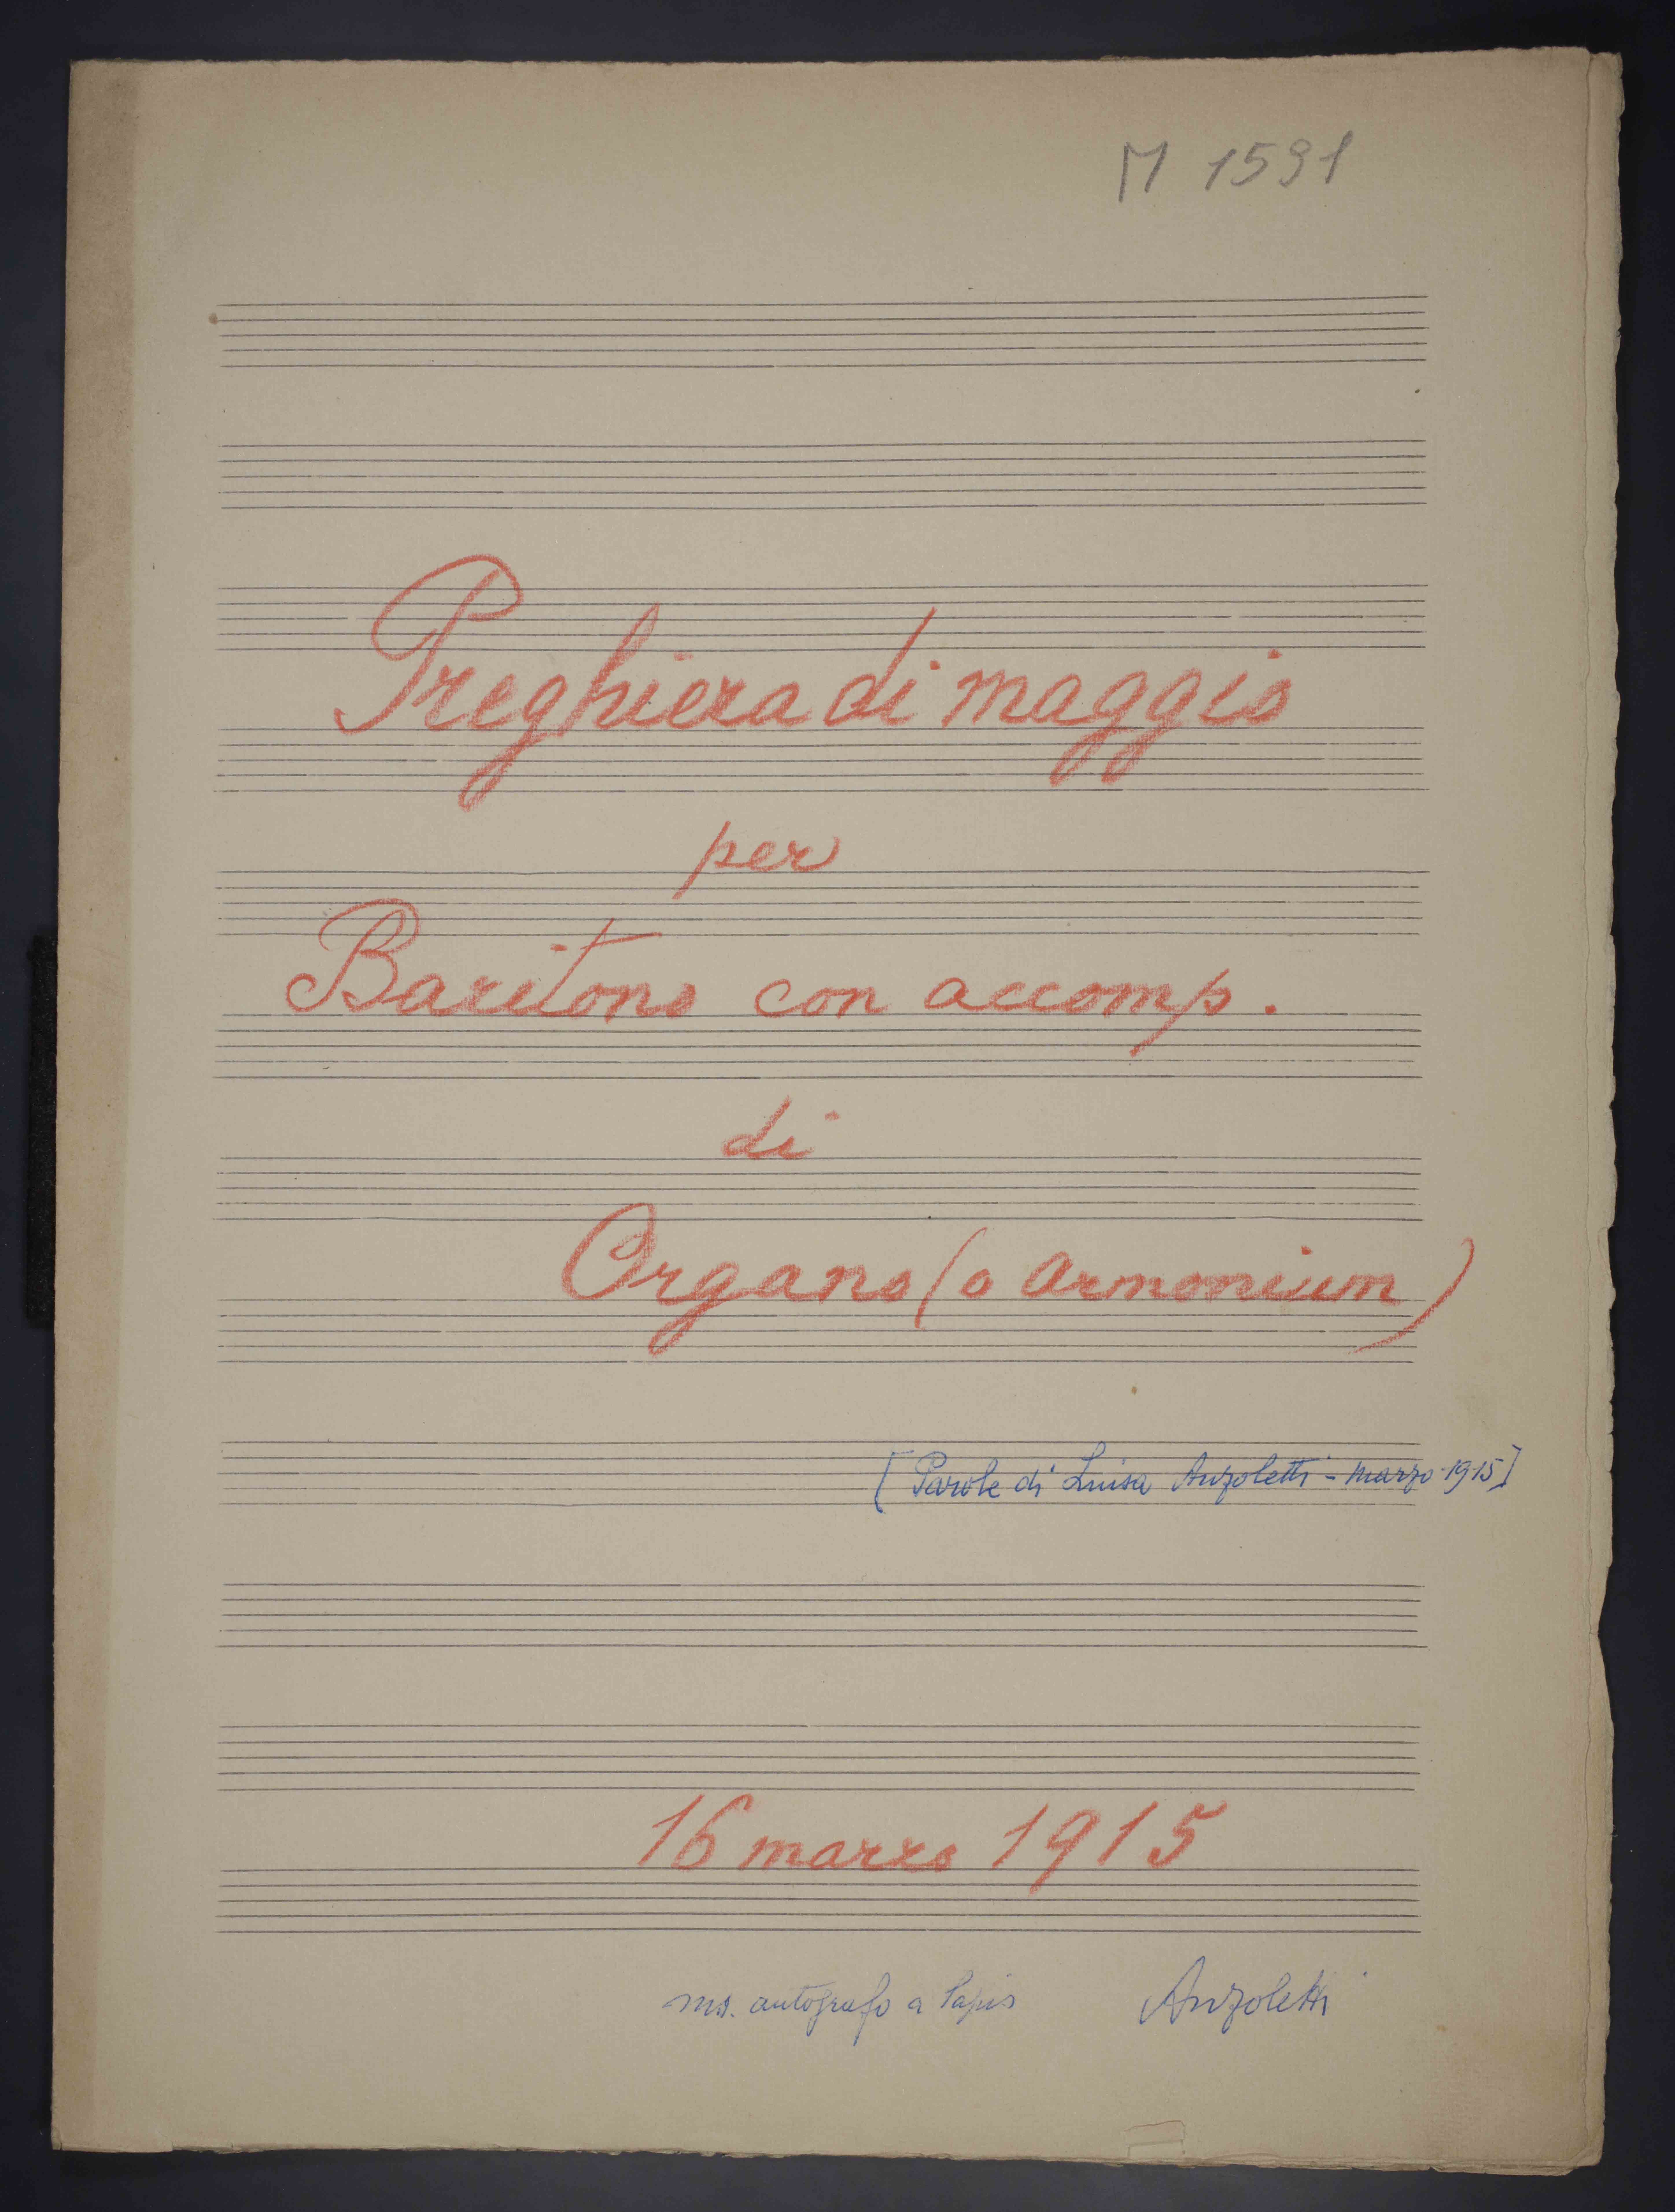 M 1591
Preghiera di maggio
per
Baritono con accomp.
di
Organo (o armonium)
[Parole di Luisa Anzoletti - marzo 1915]
16 marzo 1915
ms. autografo a lapis Anzoletti